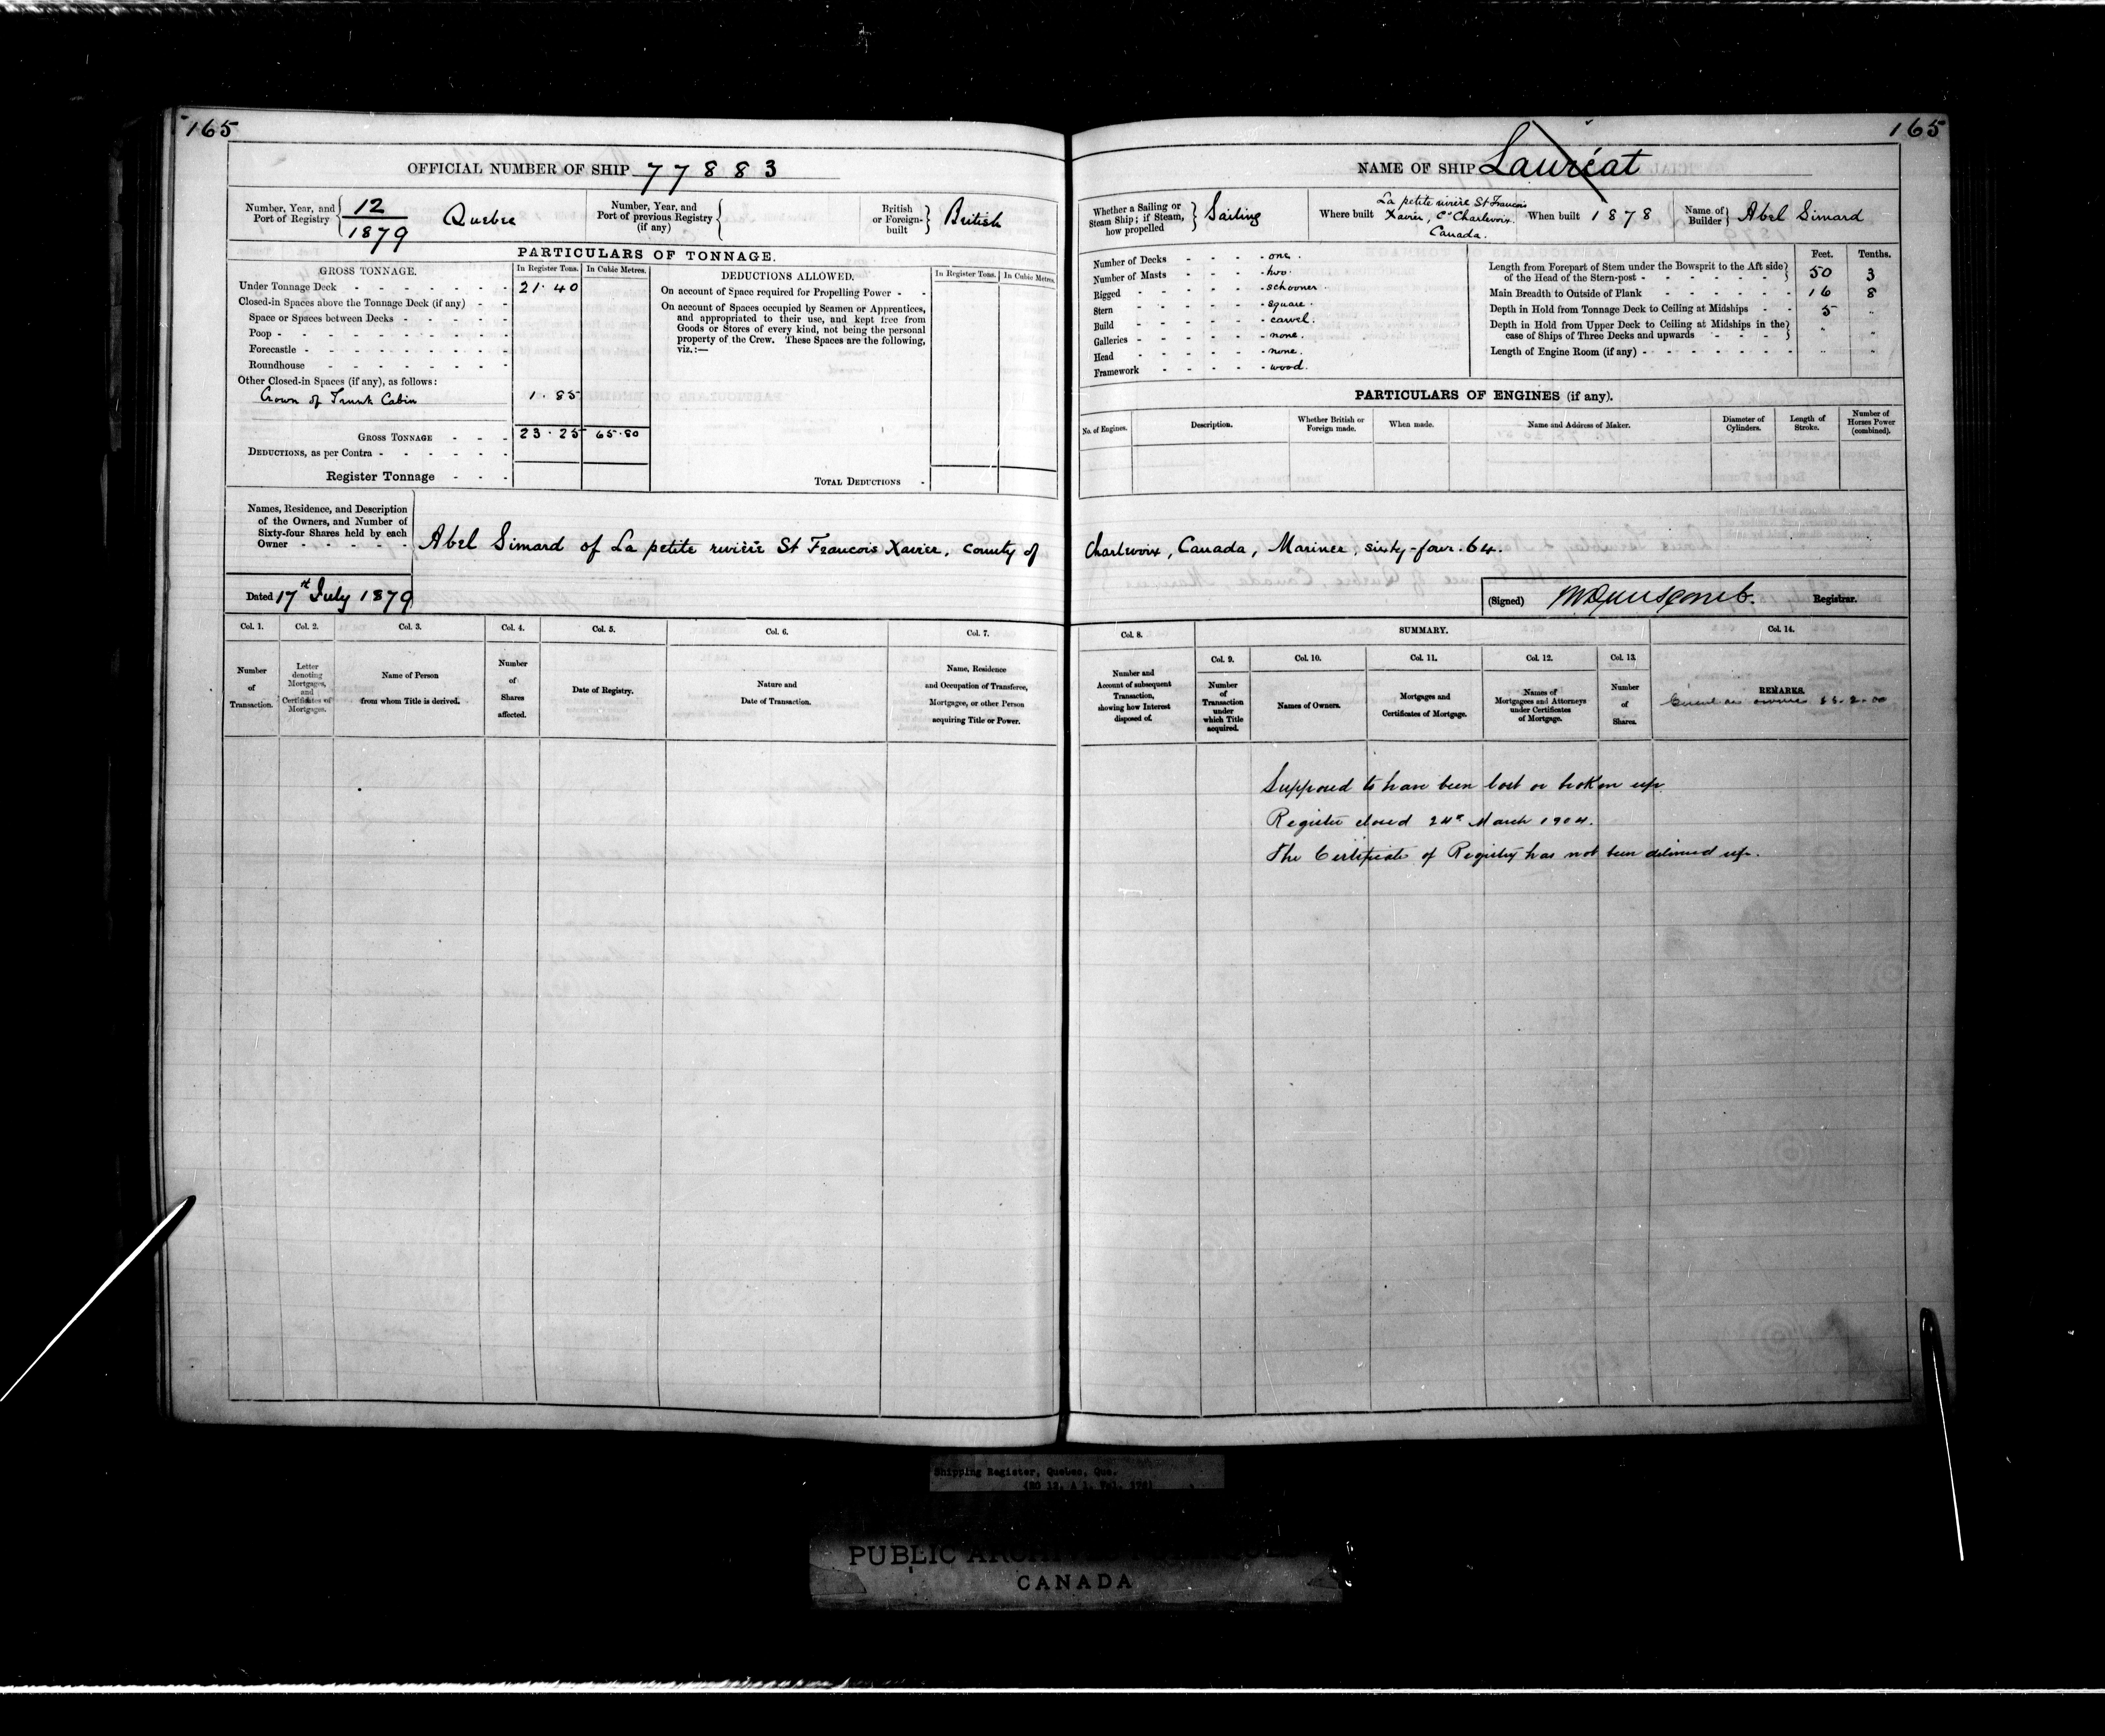 165
165
OFFICIAL NUMBER OF SHIP 77883
Number, Year, and Port of Registry 12/1879 Quebec
Number, Year, and Port of previous Registry (if any)
British or Foreign-built British
PARTICULARS OF TONNAGE.
GROSS TONNAGE. In Register Tons. In Cubic Metres.
Under Tonnage Deck - 21.40
Closed-in Spaces above the Tonnage Deck (if any) -
Space or Spaces between Decks -
Poop -
Forecastle -
Roundhouse -
Other Closed-in Spaces (if any), as follows:
Crown of Trunk Cabin 1.85
GROSS TONNAGE - 23.25 65.80
DEDUCTIONS, as per Contra -
Register Tonnage -
DEDUCTIONS ALLOWED. In Register Tons. In Cubic Metres.
On account of Space required for Propelling Power -
On account of Spaces occupied by Seamen or Apprentices,
and appropriated to their use, and kept free from
Goods or Stores of every kind, not being the personal
property of the Crew. These Spaces are the following,
viz.:—
TOTAL DEDUCTIONS -
NAME OF SHIP Lauréat
Whether a Sailing or Steam Ship; if Steam, how propelled Sailing
Where built La petite rivière St Francois
Xavier, Co Charlevoix.
Canada.
When built 1878
Name of Builder Abel Simard
Number of Decks - one.
Number of Masts - two.
Rigged - schooner.
Stern - square.
Build - carvel.
Galleries - none.
Head - none.
Framework - wood.
Feet. Tenths.
Length from Forepart of Stem under the Bowsprit to the Aft side
of the Head of the Stern-post - 50 3
Main Breadth to Outside of Plank - 16 8
Depth in Hold from Tonnage Deck to Ceiling at Midships - 5 "
Depth in Hold from Upper Deck to Ceiling at Midships in the
case of Ships of Three Decks and upwards - " "
Length of Engine Room (if any) - " "
PARTICULARS OF ENGINES (if any).
No. of Engines. Description. Whether British or Foreign made. When made. Name and Address of Maker. Diameter of Cylinders. Length of Stroke. Number of Horses Power (combined).
Names, Residence, and Description
of the Owners, and Number of
Sixty-four Shares held by each
Owner -
Abel Simard of La petite rivière St Francois Xavier, County of Charlevoix, Canada, Mariner, sixty-four. 64.
Dated 17th July 1879
(Signed) Registrar.
Col. 1. Col. 2. Col. 3. Col. 4. Col. 5. Col. 6. Col. 7. Col. 8. SUMMARY. Col. 14.
Col. 9. Col. 10. Col. 11. Col. 12. Col. 13.
Number of Transaction.
Letter denoting Mortgages, and Certificates of Mortgages.
Name of Person from whom Title is derived.
Number of Shares affected.
Date of Registry.
Nature and Date of Transaction.
Name, Residence and Occupation of Transferee, Mortgagee, or other Person acquiring Title or Power.
Number and Account of subsequent Transaction, showing how Interest disposed of.
Number of Transaction under which Title acquired.
Names of Owners.
Mortgages and Certificates of Mortgage.
Names of Mortgagees and Attorneys under Certificates of Mortgage.
Number of Shares.
REMARKS.
Supposed to have been lost or broken up.
Register closed 24th March 1904.
The Certificate of Registry has not been delivered up.
Shipping Register, Quebec, Que.
PUBLIC
CANADA